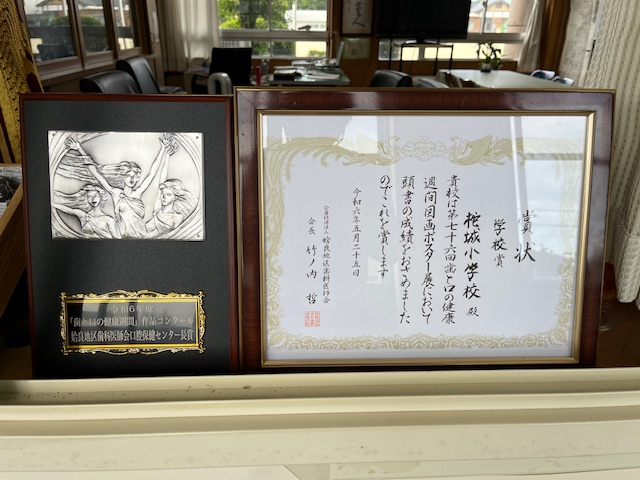 令和6年度
「歯と口の健康週間」作品コンクール
姶良地区歯科医師会口腔保健センター長賞
賞状
学校賞
柁城小学校 殿
貴校は第七十六回歯と口の健康
週間図画ポスター展において
頭書の成績をおさめました
のでこれを賞します
令和六年五月二十五日
公益社団法人 姶良地区歯科医師会
会長 竹ノ内 哲